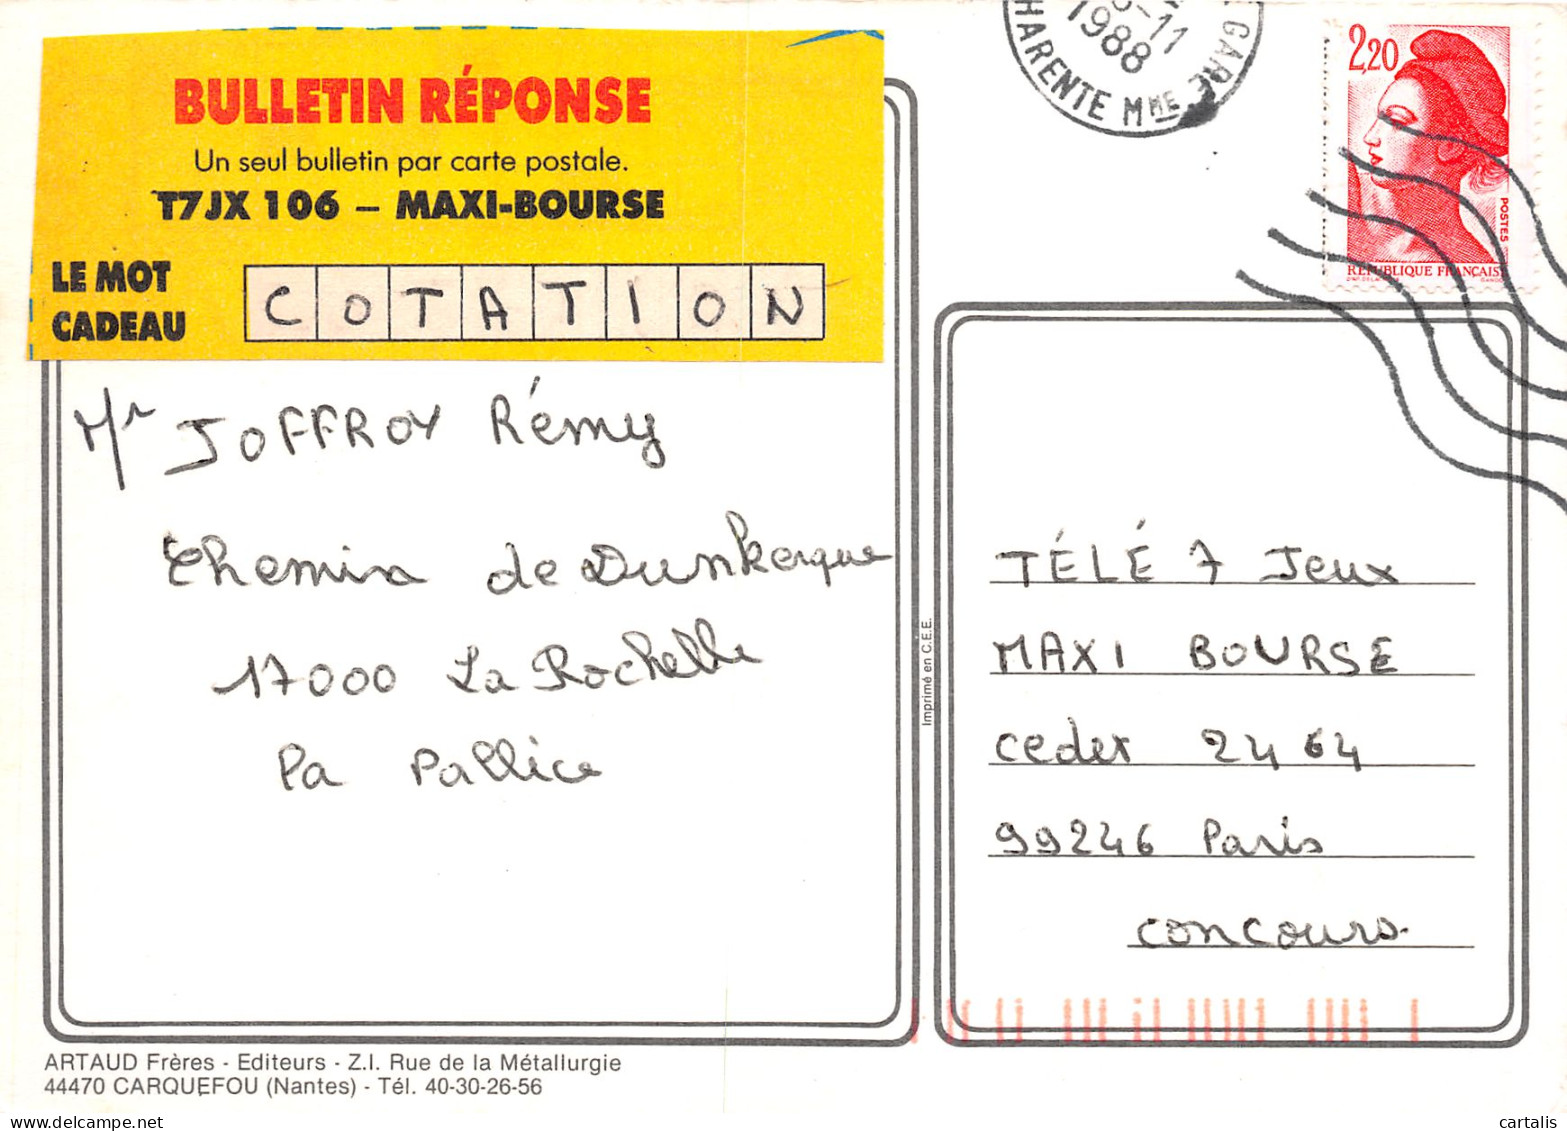 BULLETIN RÉPONSE
Un seul bulletin par carte postale.
T7JX 106 – MAXI-BOURSE
LE MOT
CADEAU
COTATION
Mr JOFFROY Rémy
Chemin de Dunkerque
17000 La Rochelle
La Pallice
ARTAUD Frères - Editeurs - Z.I. Rue de la Métallurgie
44470 CARQUEFOU (Nantes) - Tél. 40-30-26-56
Imprimé en C.E.E.
11
1988
GARE
HARENTE MME
2,20
POSTES
RÉPUBLIQUE FRANÇAISE
TÉLÉ 7 Jeux
MAXI BOURSE
cedex 2464
99246 Paris
concours.
cartalis